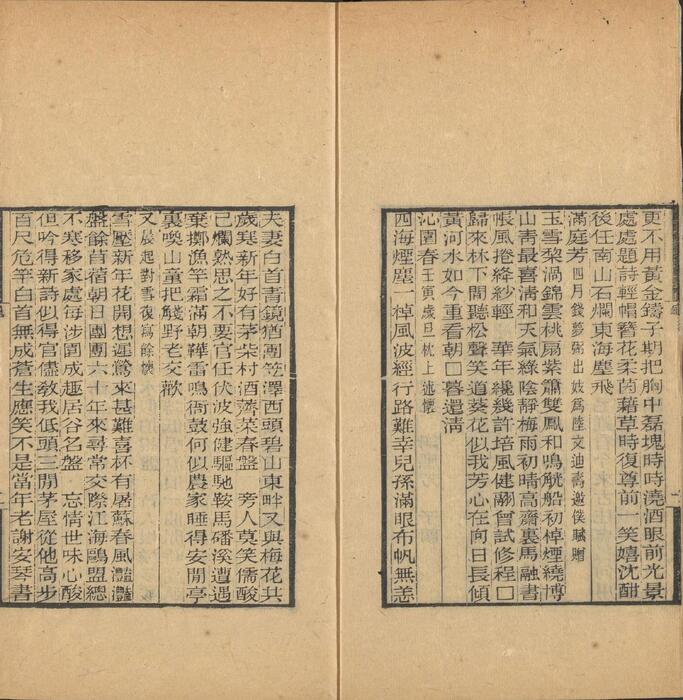 更不用黃金鑄子期把胸中磊塊時時澆酒眼前光景
處處題詩輕帽簪花柔茵藉草時復尊前一笑嬉沈酣
後任南山石爛東海塵飛
滿庭芳四月錢夢弼出妓爲陸文迪壽邀僕賦贈
玉雪黎渦錦雲桃扇紫簫雙鳳和鳴觥船初棹煙繞博
山青最喜淸和天氣綠陰靜梅雨初晴高齋裏馬融書
帳風捲絳紗輕 華年纔幾許培風健翮曾試修程□
歸來林下閒聽松聲笑道葵花似我芳心在向日長傾
黃河水如今重看朝□暮還淸
沁園春壬寅歲旦枕上述懷
四海煙塵一棹風波經行路難幸兒孫滿眼布帆無恙
夫妻白首靑鏡猶團笠澤西頭碧山東畔又與梅花共
歲寒新年好有茅柴村酒薺菜春盤 旁人莫笑儒酸
已爛熟思之不要官任伏波強健驅馳鞍馬磻溪遭遇
棄擲漁竿霜滿朝鞾雷鳴衙鼓何似農家睡得安閒亭
裏喚山童把醆野老交歡
又晨起對雪復寫餘懷
雪壓新年花開想遲鶯來甚難喜杯有屠蘇春風灩灩
盤餘苜蓿朝日團團六十年來尋常交際江海鷗盟總
不寒移家處每涉園成趣居谷名盤 忘情世味心酸
但吟得新詩似得官儘敎我低頭三閒茅屋從他高步
百尺危竿白首無成蒼生應笑不是當年老謝安琴書